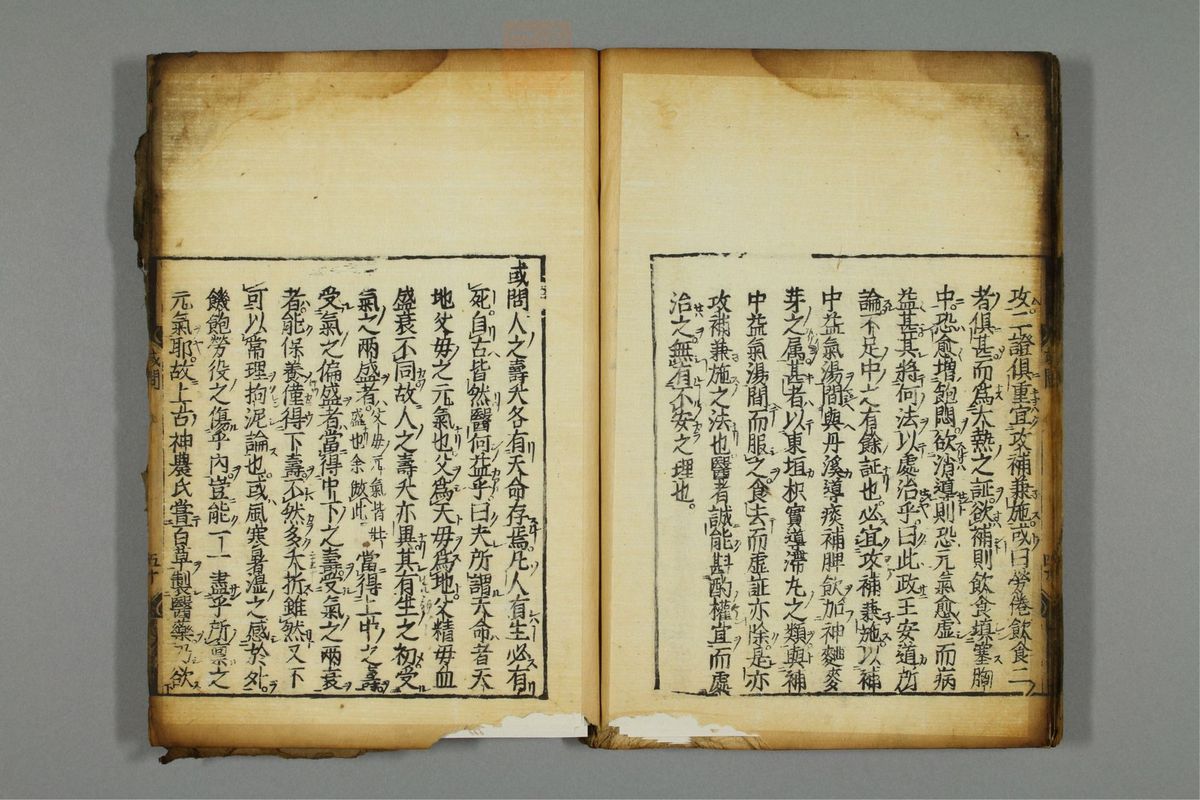 攻二證俱重宜攻補兼施或曰勞倦飲食二
者俱甚而爲大熱之証欲補則飲食填塞胸
中恐愈増飽悶欲消導則恐元氣愈虛而病
益甚其將何法以處治乎曰此政王安道所
論不足中之有餘証也必宜攻補兼施以補
中益氣湯間與丹溪導痰補脾飲加神麯麥
芽之属甚者以東垣枳實導滯丸之類與補
中益氣湯間而服之食去而虛証亦除是亦
攻補兼施之法也醫者誠能斟酌權宜而處
治之無有不安之理也。
或問人之壽夭各有天命存焉凡人有生必有
死自古皆然醫何益乎曰夫所謂天命者天
地父毋之元氣也父爲天毋爲地父精毋血
盛衰不同故人之壽夭亦異其有生之初受
氣之兩盛者。父毋元氣皆壯盛也余倣此當得上中之壽
受氣之偏盛者當得中下之壽受氣之兩衰
者能保養僅得下壽不然多夭折雖然又不
可以常理拘泥論也或風寒暑濕之感於外。
饑飽勞役之傷乎內豈能一一盡乎所稟之
元氣耶。故上古神農氏嘗百草製醫藥乃欲